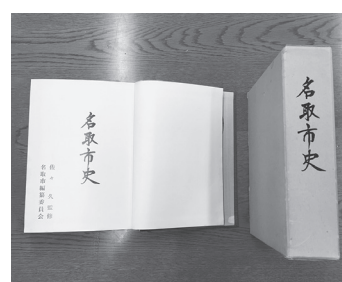 名取市史
佐々久監修
名取市編纂委員会
名取市史